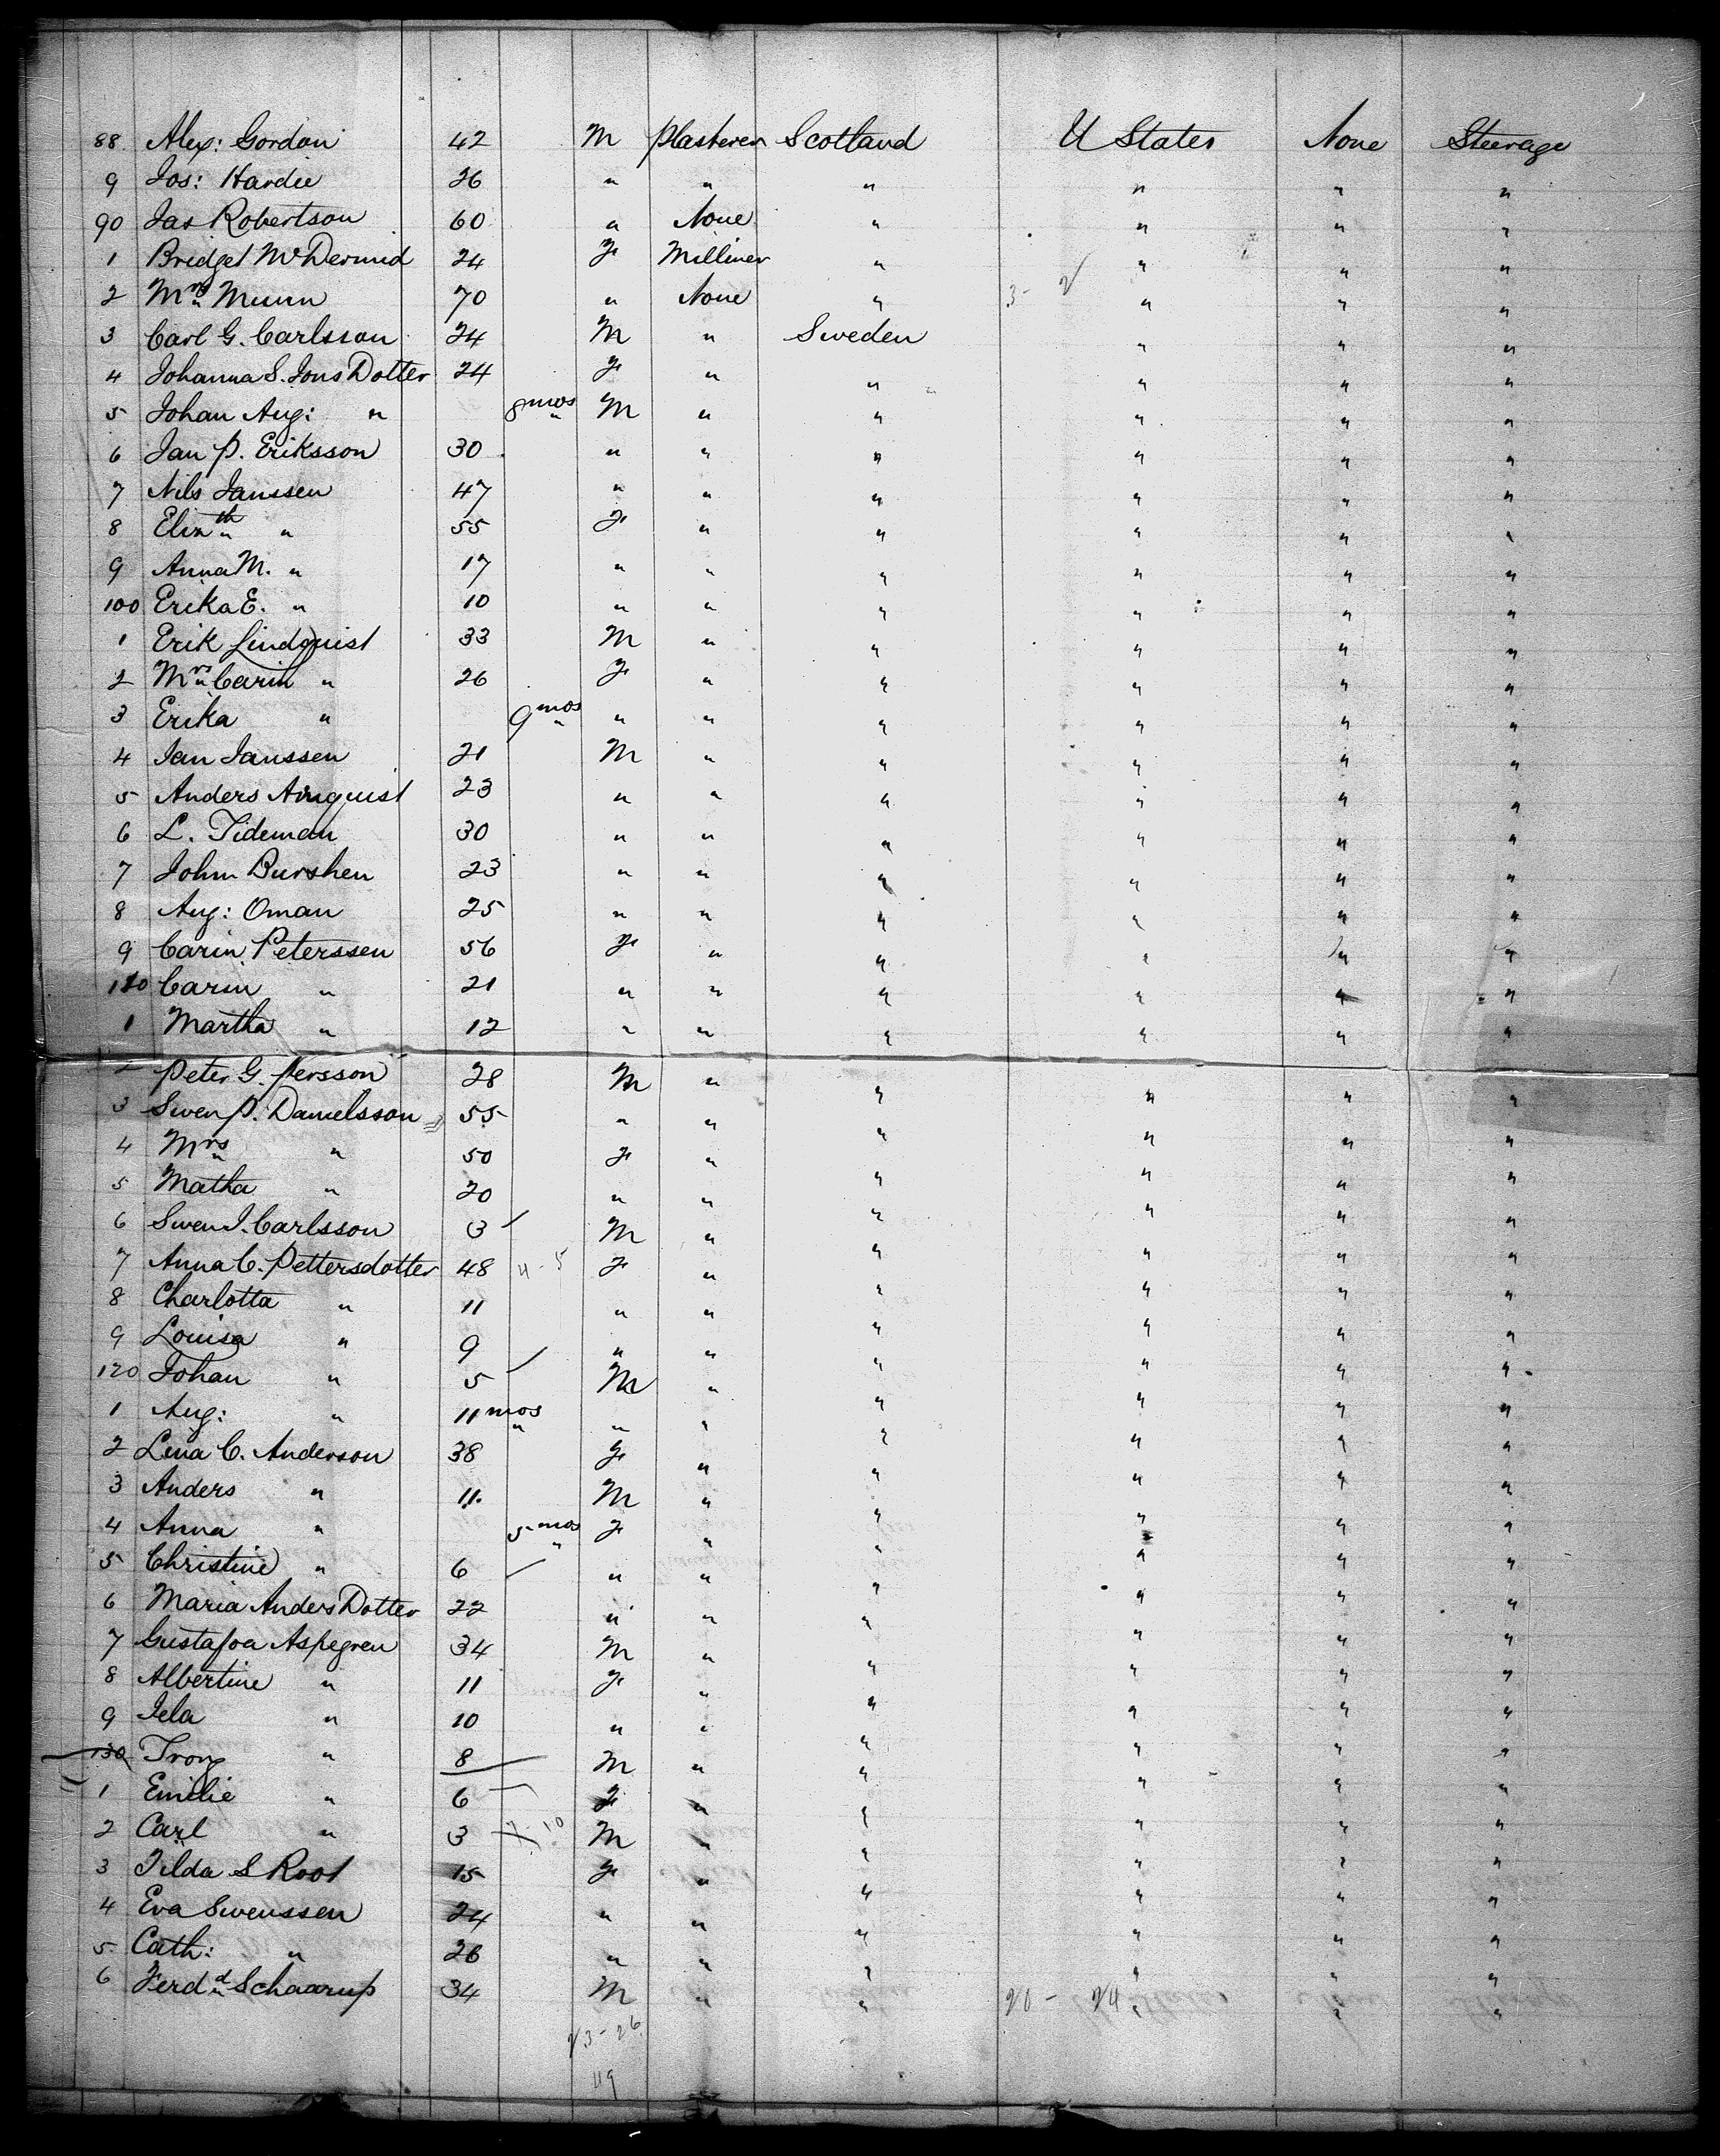 88 Alex: Gordon 42 M Plasterer Scotland U States None Steerage
9 Jos: Hardie 26 " " " " " "
90 Jas Robertson 60 " None " " " "
1 Bridget McDermid 24 F Milliner " " " "
2 Mrs Munn 70 " None " 3 - 2 " " "
3 Carl G. Carlsson 24 M " Sweden " " "
4 Johanna S. Jons Dotter 24 F " " " " "
5 Johan Aug: " 8 mos M " " " " "
6 Jan P. Eriksson 30 " " " " " "
7 Nils Janssen 47 " " " " " "
8 Elizth " 55 F " " " " "
9 Anna M. " 17 " " " " " "
100 Erika E. " 10 " " " " " "
1 Erik Lindquist 33 M " " " " "
2 Mrs Carin " 26 F " " " " "
3 Erika " 9 mos " " " " " "
4 Jan Janssen 21 M " " " " "
5 Anders 23 " " " " " "
6 L. Tideman 30 " " " " " "
7 John Burshen 23 " " " " " "
8 Aug: Oman 25 " " " " " "
9 Carin Peterssen 56 F " " " " "
110 Carin " 21 " " " " " "
1 Martha " 12 " " " " " "
2 Peter G. Persson 28 M " " " " "
3 Swen P. Danielsson 55 " " " " " "
4 Mrs " 50 F " " " " "
5 Matha " 20 " " " " " "
6 Swen J. Carlsson 3 M " " " " "
7 Anna C. Pettersdotter 48 4 - 5 F " " " " "
8 Charlotta " 11 " " " " " "
9 Louisa " 9 " " " " " "
120 Johan " 5 M " " " " "
1 Aug: " 11 mos " " " " " "
2 Lena C. Anderson 38 F " " " " "
3 Anders " 11 M " " " " "
4 Anna " 5 mos F " " " " "
5 Christine " 6 " " " " " "
6 Maria Anders Dotter 22 " " " " " "
7 Gustafva Aspegren 34 M " " " " "
8 Albertine " 11 F " " " " "
9 Jela " 10 " " " " " "
130 " 8 M " " " " "
1 Emilie " 6 F " " " " "
2 Carl " 3 M " " " " "
3 Tilda S Root 15 F " " " " "
4 Eva Swenssen 24 " " " " " "
5 Cath: " 26 " " " " " "
6 Ferdd Schaarup 34 M " " 20 - 24 " " "
23 - 26
49